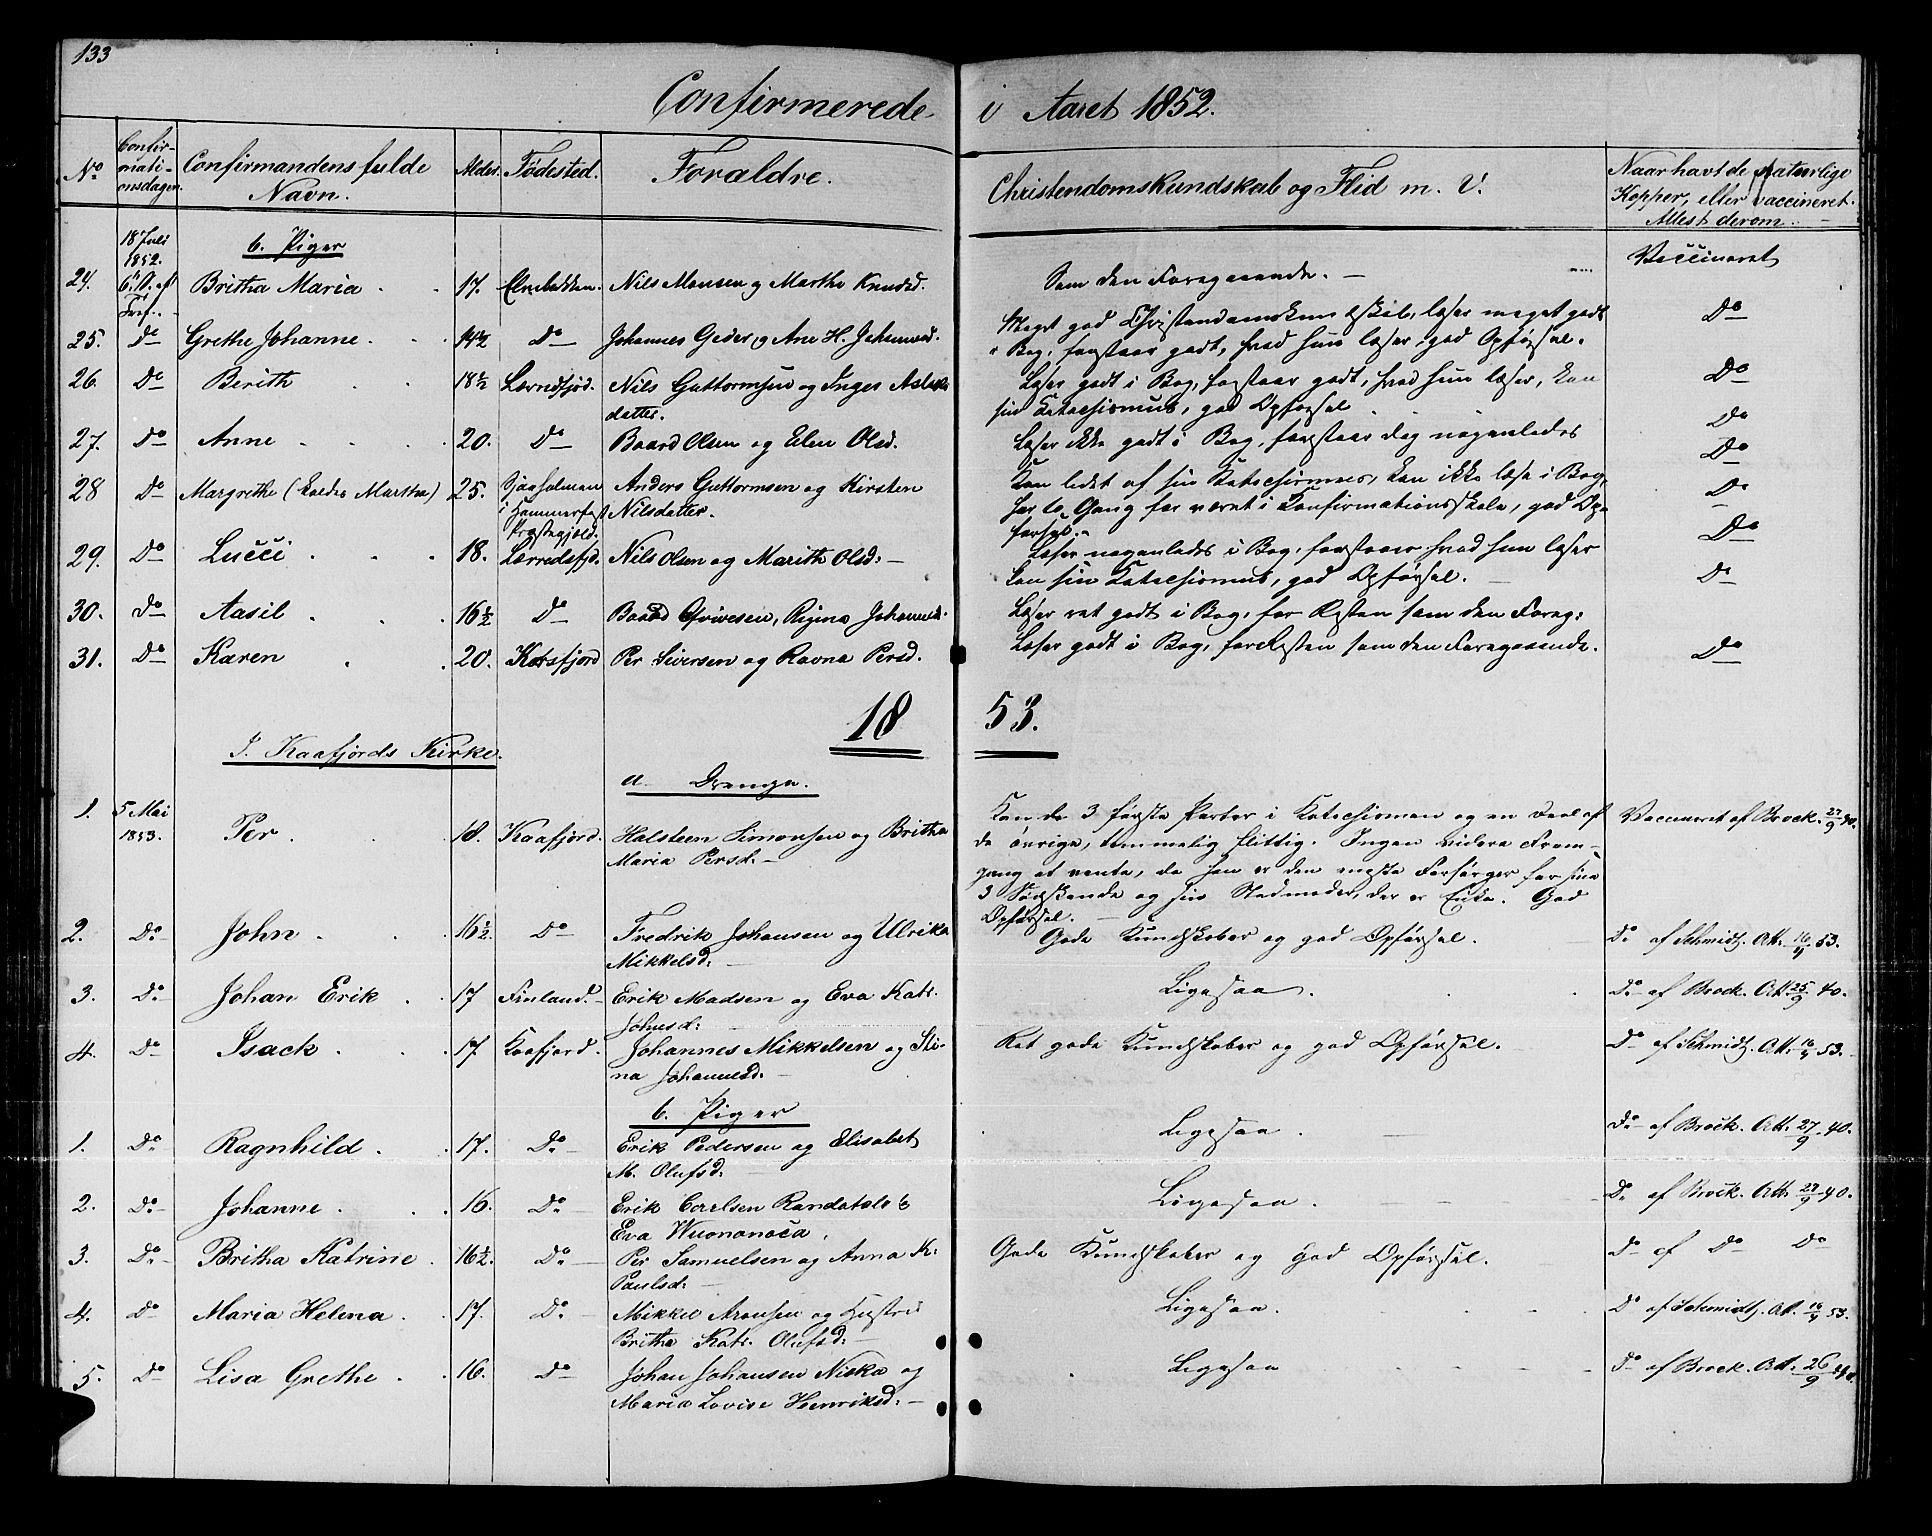 133
Confirmerede i Aaret 1852.
No Confirmationsdagen. Confirmandens fulde Navn. Alder. Fødested. Forældre. Christendomskundskab og Flid m. V. Naar havt de naturlige Kopper, eller vaccineret. Attest derom.
18 Juli 1852. b. Piger
24. Britha Maria 17. Elvebakken. Nils Monsen og Marthe Knudsd. Som den Foregaaende. Vaccineret
25. Do Grethe Johanne 14½ Do Johannes Geder og Ane H. Johannesd. Meget god Christendomskundskab, læser meget godt Do
i Bog, forstaar godt, hvad hun læser, god Opførsel.
26. Do Berith 18½ Nils Guttormsen og Inger Aslaks Læser godt i Bog, forstaar godt, hvad hun læser, kan Do
datter. sin Katechismus, god Opførsel
27. Do Anne 20. Do Baard Olsen og Elen Olsd. Læser ikke godt i Bog, forstaar dog nogenledes Do
Do
28 Do Margrethe (kaldes Martha) 25. i Hammerfest Præstegjeld. Anders Guttormsen og Kirsten Kan lidet af sin Katechismus, kan ikke læse i Bog, Do
Nilsdatter. har to Gang før været i Confirmationsskole, god Op-
førsel.
29. Do Lucci 18. Lærredsfjd. Nils Olsen og Marith Olsd: Læser nogenledes i Bog, forstaaer hvad hun læser Do
kan sin Katechismus, god Opførsel. Do
30. Do Aasil 16½ Do Baard Johannesd. Læser ret godt i Bog, for Resten som den Foreg:
31. Do Karen 20. Korsfjord Per Siversen og Ravna Persd. Læser godt i Bog, forresten som den Foregaaende. Do
1853.
I. Kaafjords Kirke.
a. Drenge.
1. 5 Mai 1853. Per 18. Kaafjord. Halsteen Simonsen og Britha Kan de 3 første Parter i Katechismen og en Deel af Vaccineret af Brock. 27/9 40.
Maria Persd: de øvrige, temmelig flittig. Ingen videre Frem-
gang at vente, da han er den meste Forsørger for sine
3 Søskende og sin Stedmoder, der er Enke. God
Opførsel.
2. Do John 16½ Do Fredrik Johansen og Ulrika Gode Kundskaber og god Opførsel. Do af Schmidt. Att. 16/4 53.
Mikkelsd:
3. Do Johan Erik 17 Finland. Erik Madsen og Eva Katr. Ligesaa. Do af Brock. Att. 25/9 40.
Johnsd:
4. Do Isack 17 Kaafjord. Johannes Mikkelsen og Sti- Ret gode Kundskaber og god Opførsel. Do af Schmidt. Att. 16/4 53.
na Johannesd:
b. Piger
1. Do Ragnhild 17. Do Erik Pedersen og Elisabet Ligesaa. Do af Brock. Att. 27/9 40.
M. Olufsd:
2. Do Johanne 16. Do Erik Carlsen Randatalo & Ligesaa. Do af Brock. Att. 27/9 40.
Eva
3. Do Britha Katrine 16½. Do Per Samuelsen og Anna K: Gode Kundskaber og god Opførsel. Do af Do Do
Paulsd:
4. Do Maria Helena 17. Do Mikkel Aronsen og Hustru Ligesaa. Do af Schmidt. Att. 16/4 53.
Britha Katr. Olufsd:
5. Do Lisa Grethe 16. Do Johan Johansen Niska og Ligesaa Do af Brock. Att. 26/9 40.
Maria Lovise Henriksd: